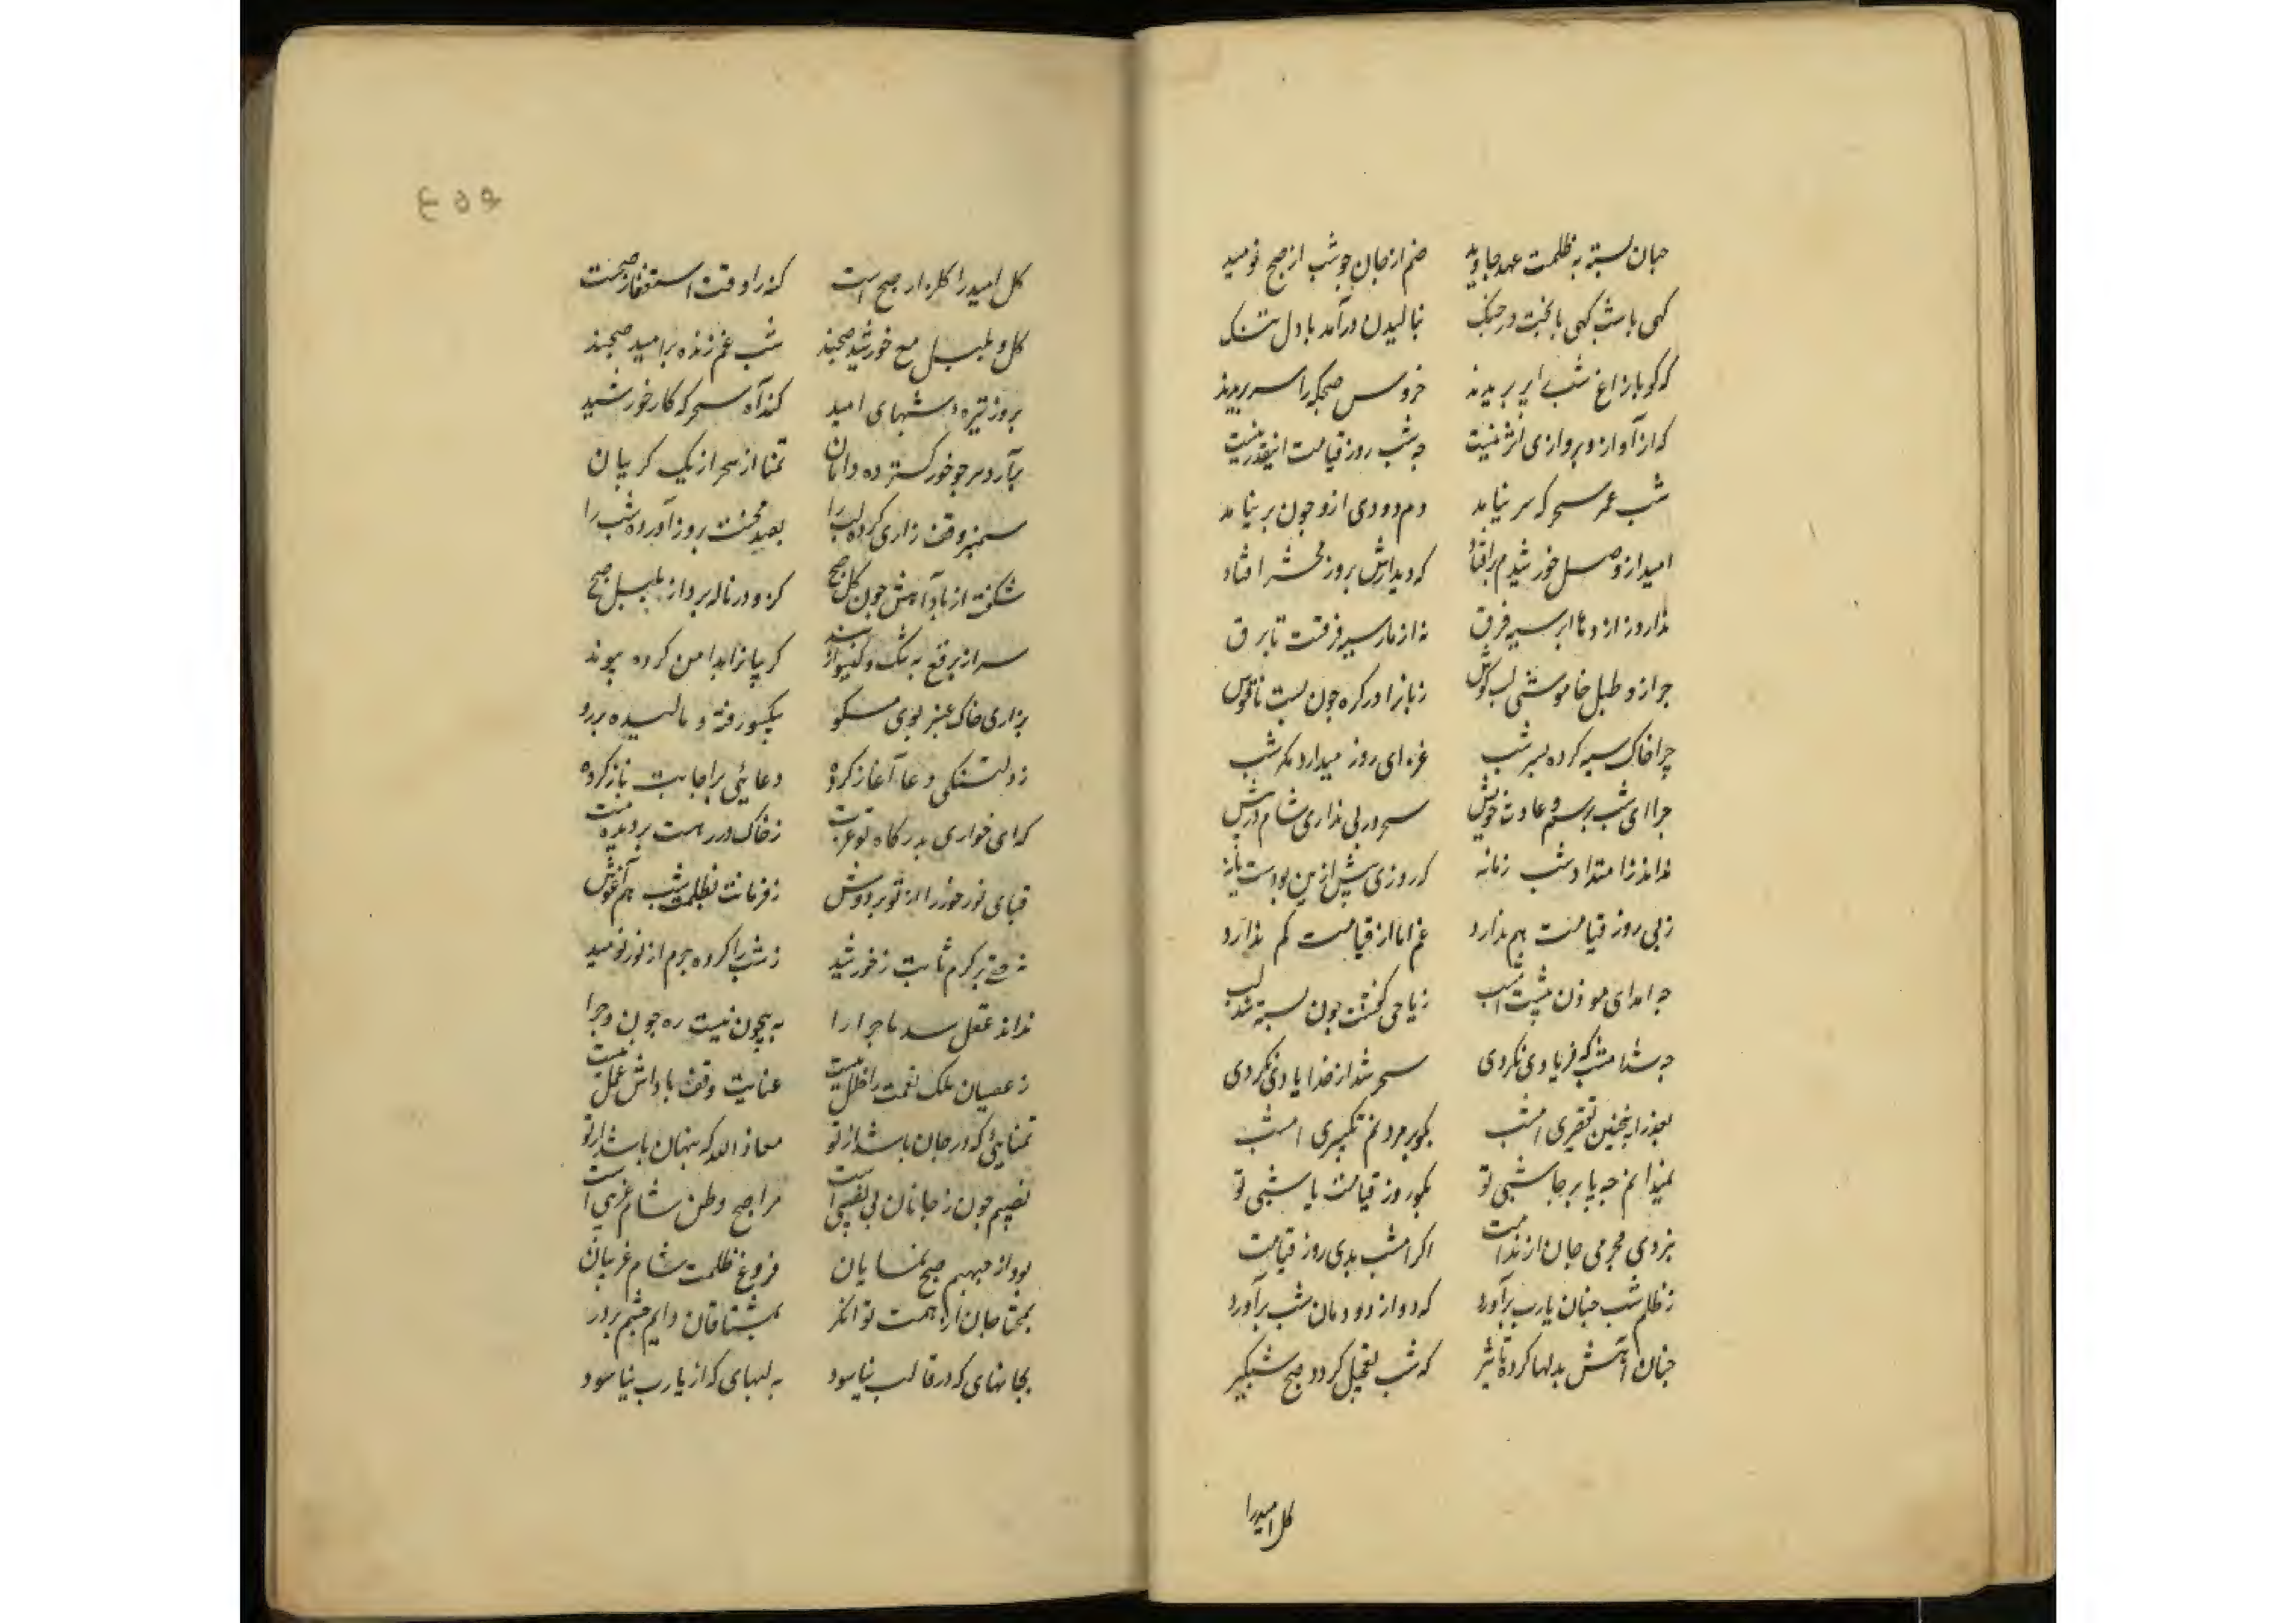 جهان بسته به ظلمت عهد جاوید صنم از جان چو شب از صبح نومید
کهی با شب کهی با بخت در جنک بنالیدن درآمد با دل تنک
که کویا زاغ شب را پر بریدند خروس صبحکه را سر بریدند
که از آواز و پروازی اثر نیست چه شب روز قیامت اینقدر نیست
شب عمر سحر که سر نیامد دم دودی ازو چون بر نیامد
امید از وصل خورشیدم برافتاد که دیدارش بروز محشر افتاد
ندارد روز از دعا ابر سیه فرق نه از مار سیه فرقست تا برق
چرا زد طبل خاموشی لب کوس زبانرا در کره چون بست ناقوس
چرا خاک سیه کرده بسر شب عزای روز میدارد مکر شب
چرا ای شب برسم و عادت خویش سحر در پی نداری شام در پیش
نداند ز امتداد شب زمانه که روزی پیش ازین بودست یا نه
ز پی روز قیامت هم ندارد غم اما از قیامت کم ندارد
چه آمد ای موذن پیشت امشب ز یا حی کفتنت چون بسته شد لب
چه شد امشب که فریادی نکردی سحر شد از خدا یادی نکردی
بعذر اینچنین تقصیری امشب بکو بر مردنم تکبیری امشب
نمیدانم چه پا بر جا شبی تو بکو روز قیامت یا شبی تو
بزودی مجرمی جان از ندامت اکر امشب بدی روز قیامت
ز ظلم شب چنان یارب برآورد که دود از دودمان شب برآورد
چنان آتش بدلها کرده تاثیر که شب تعجیل کردد صبح شبکیر
کل امید را
کل امید را کلزار صبح است کنه را وقت استغفار صبحست
کل و بلبل مع خورشید صبحند شب غم زنده بر امید صبحند
بروز تیره و شبهای امید کند آه سحر که کار خورشید
برآرد سر چو خور کسترده دامان تمنا از سحر از یک کریبان
سمنبر وقف زاری کرده لب را بصد محنت بروز آورده شب را
شکفت از باد آهش چون کل صبح کزو در ناله پرداز بلبل صبح
سر از برقع به مشک و کیسو کریبانرا بدامن کرده پیوند
بزاری خاک عنبر بوی مشکو بکیسو رفته و مالیده بر رو
ز دلتنکی دعا آغاز کرده دعایی بر اجابت ناز کرده
که ای خواری بدرکاه تو عزت ز خاک در رهت بر دیده منت
قبای نور خور را از تو بر دوش ز فرمانت بظلمت شب هم آغوش
نه حقی بر کرم ثابت ز خورشید نه شب را کرده جرم از نور نومید
نداند عقل سد ماجرا را به بیچون نیست ره چون و چرا را
ز عصیان ملک نعمت را خلل نیست عنایت وقف پاداش عمل نیست
تمنایی که در جان باشد از تو معاذ الله که پنهان باشد از تو
نصیبم چون ز جانان بی نصیبی است مرا صبح وطن شام غریبی است
بود از مبهم صبح نمایان فروغ ظلمت شام غریبان
بمحتاجان از همت توانکر بمشتاقان دایم چشم بر در
بجانهای که در قالب نیاسود به لبهای که از یارب نیاسود